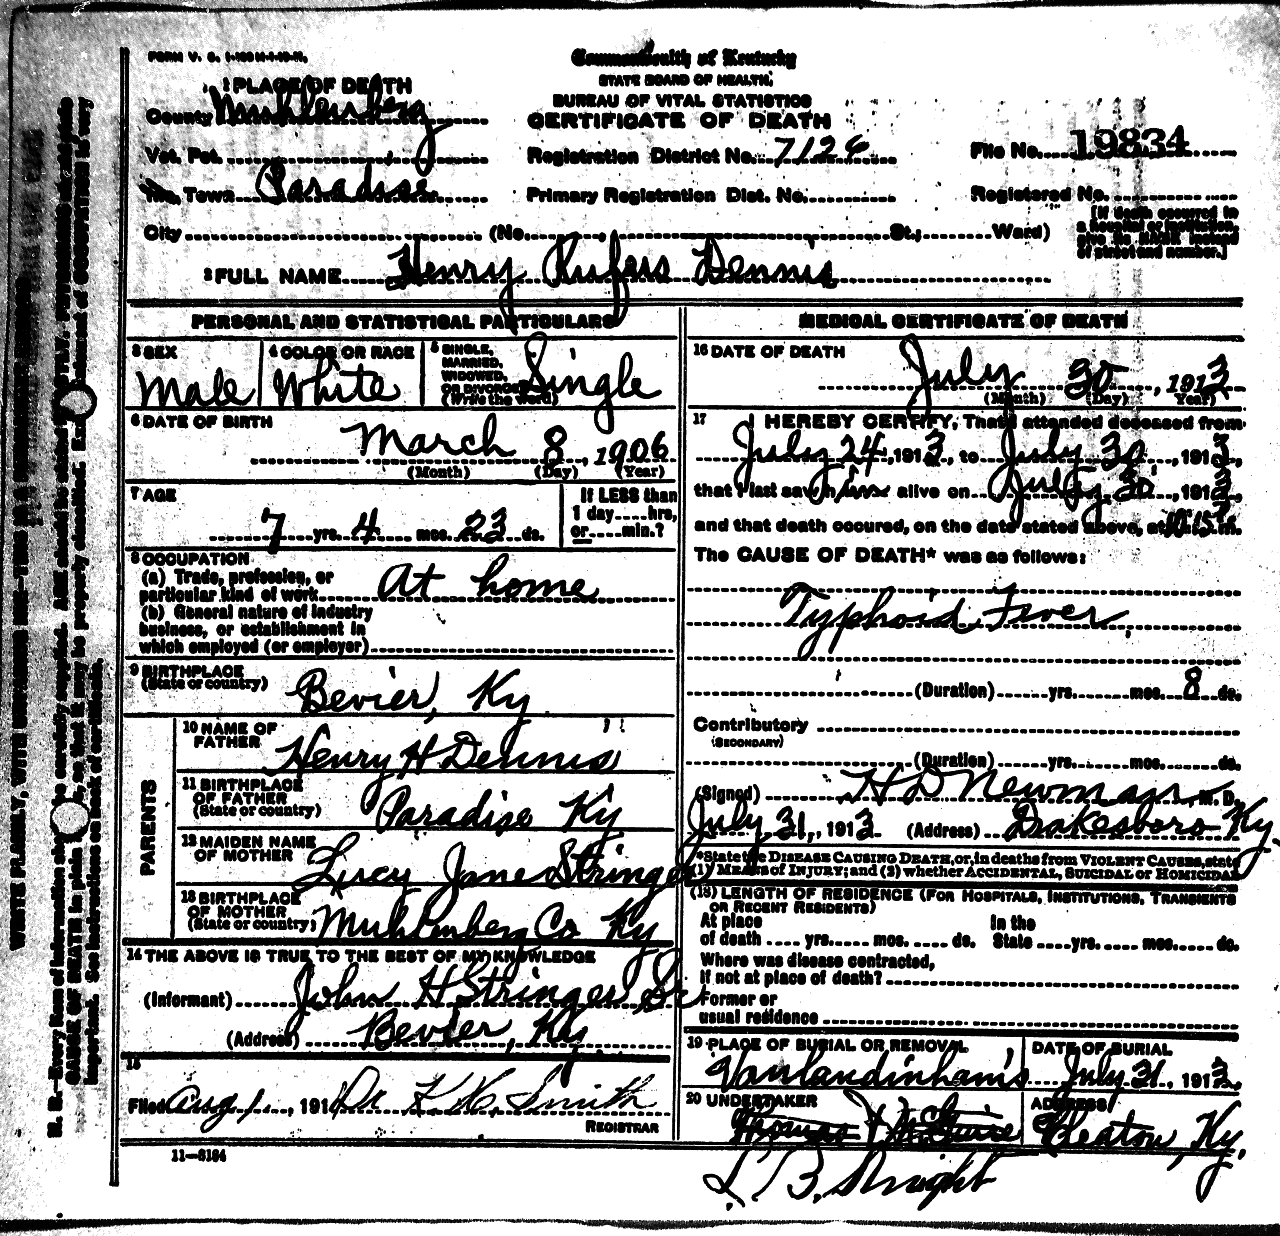 FORM V. S. 
Commonwealth of Kentucky
STATE BOARD OF HEALTH,
BUREAU OF VITAL STATISTICS
CERTIFICATE OF DEATH
1 PLACE OF DEATH
County Muhlenberg
Vot. Pct.
Inc. Town Paradise
City (No. St.; Ward)
Registration District No. 7126
Primary Registration Dist. No.
File No. 19834
Registered No.
[If death occurred in
a hospital or institution,
give its NAME instead
of street and number.]
2 FULL NAME Henry Rufus Dennis
PERSONAL AND STATISTICAL PARTICULARS
3 SEX
Male
4 COLOR OR RACE
White
5 SINGLE,
MARRIED,
WIDOWED,
OR DIVORCED
(Write the word)
Single
6 DATE OF BIRTH
March 8, 1906
(Month) (Day) (Year)
7 AGE
7 yrs. 4 mos. 23 ds.
If LESS than
1 day....hrs,
or....min.?
8 OCCUPATION
(a) Trade, profession, or
particular kind of work At home
(b) General nature of industry
business, or establishment in
which employed (or employer)
9 BIRTHPLACE
(State or country)
Bevier, Ky
PARENTS
10 NAME OF
FATHER
Henry H Dennis
11 BIRTHPLACE
OF FATHER
(State or country)
Paradise Ky
12 MAIDEN NAME
OF MOTHER
Lucy Jane Stringer
13 BIRTHPLACE
OF MOTHER
(State or country)
Muhlenberg Co Ky
14 THE ABOVE IS TRUE TO THE BEST OF MY KNOWLEDGE
(Informant) John H Stringer Sr
(Address) Bevier, Ky
15
Filed Aug 1, 191 Dr K. W. Smith
REGISTRAR
11—8184
MEDICAL CERTIFICATE OF DEATH
16 DATE OF DEATH
July 30, 1913
(Month) (Day) (Year)
17 I HEREBY CERTIFY, That I attended deceased from
July 24, 1913, to July 30, 1913,
that I last saw him alive on July 30, 1913,
and that death occured, on the date stated above, at m.
The CAUSE OF DEATH* was as follows:
Typhoid Fever
(Duration) yrs. mos. 8 ds.
Contributory
(SECONDARY)
(Duration) yrs. mos. ds.
(Signed) H D Newman M. D.
July 31, 1913 (Address) Drakesboro Ky
*State the DISEASE CAUSING DEATH, or, in deaths from VIOLENT CAUSES, state
(1) MEANS OF INJURY; and (2) whether ACCIDENTAL, SUICIDAL or HOMICIDAL
(18) LENGTH OF RESIDENCE (FOR HOSPITALS, INSTITUTIONS, TRANSIENTS
OR RECENT RESIDENTS)
At place In the
of death .... yrs. .... mos. .... ds. State .... yrs. .... mos. .... ds.
Where was disease contracted,
if not at place of death?
Former or
usual residence
19 PLACE OF BURIAL OR REMOVAL
Vanlandinham's
DATE OF BURIAL
July 31, 1913,
20 UNDERTAKER
Thomas J McGuire
ADDRESS
Cleaton, Ky.
WRITE PLAINLY, WITH UNFADING INK—THIS IS A PERMANENT RECORD